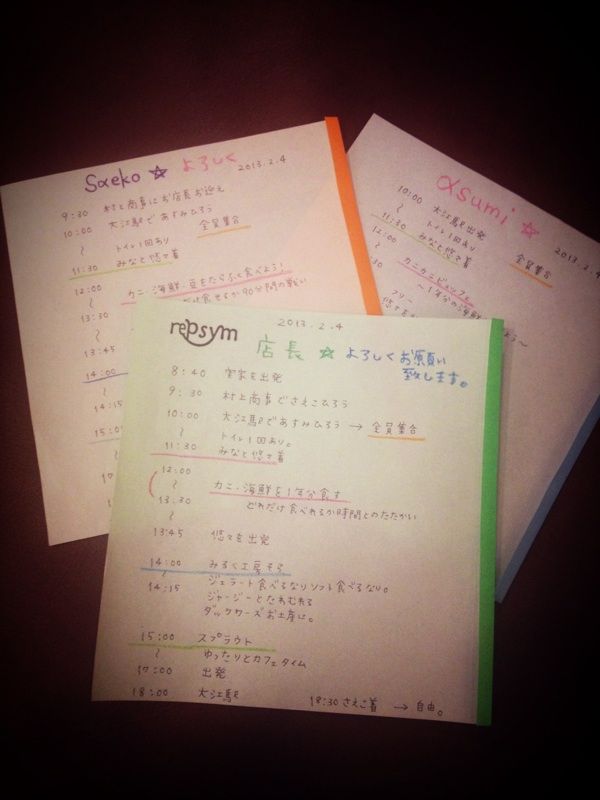 Saeko ☆ よろしく
2013.2.4
9:30 村上商事にお店長お迎え
10:00 大江駅であすみひろう
〜 トイレ1回あり 全員集合
11:30 みなと悠々着
12:00 カニ・海鮮・豆をたらふく食べよう!
〜 食せるか90分間の戦い
13:30
〜
13:45
14:00
〜
14:15
15:0
〜
17:
18
αsumi ☆
2013.2.4
10:00 大江駅出発
〜 トイレ1回あり 全員集合
11:30 みなと悠々着
12:00 カニカニビュッフェ
〜 〜1年分の海鮮
フリー
repsym
2013.2.4
店長 ☆ よろしくお願い
致します。
8:40 実家を出発
9:30 村上商事でさえこひろう
10:00 大江駅であすみひろう → 全員集合
〜 トイレ1回あり。
11:30 みなと悠々着
12:00
〜 カニ・海鮮を1年分食す
13:30 どれだけ食べれるか時間とのたたかい
〜
13:45 悠々を出発
14:00 みるく工房そら
〜 ジェラート食べるなりソフト食べるなり。
14:15 ジャージーとたわむれる
ダックワーズお土産に。
15:00 スプラウト
〜 ゆったりとカフェタイム
17:00 出発
18:00 大江駅 18:30 さえこ着 → 自由。